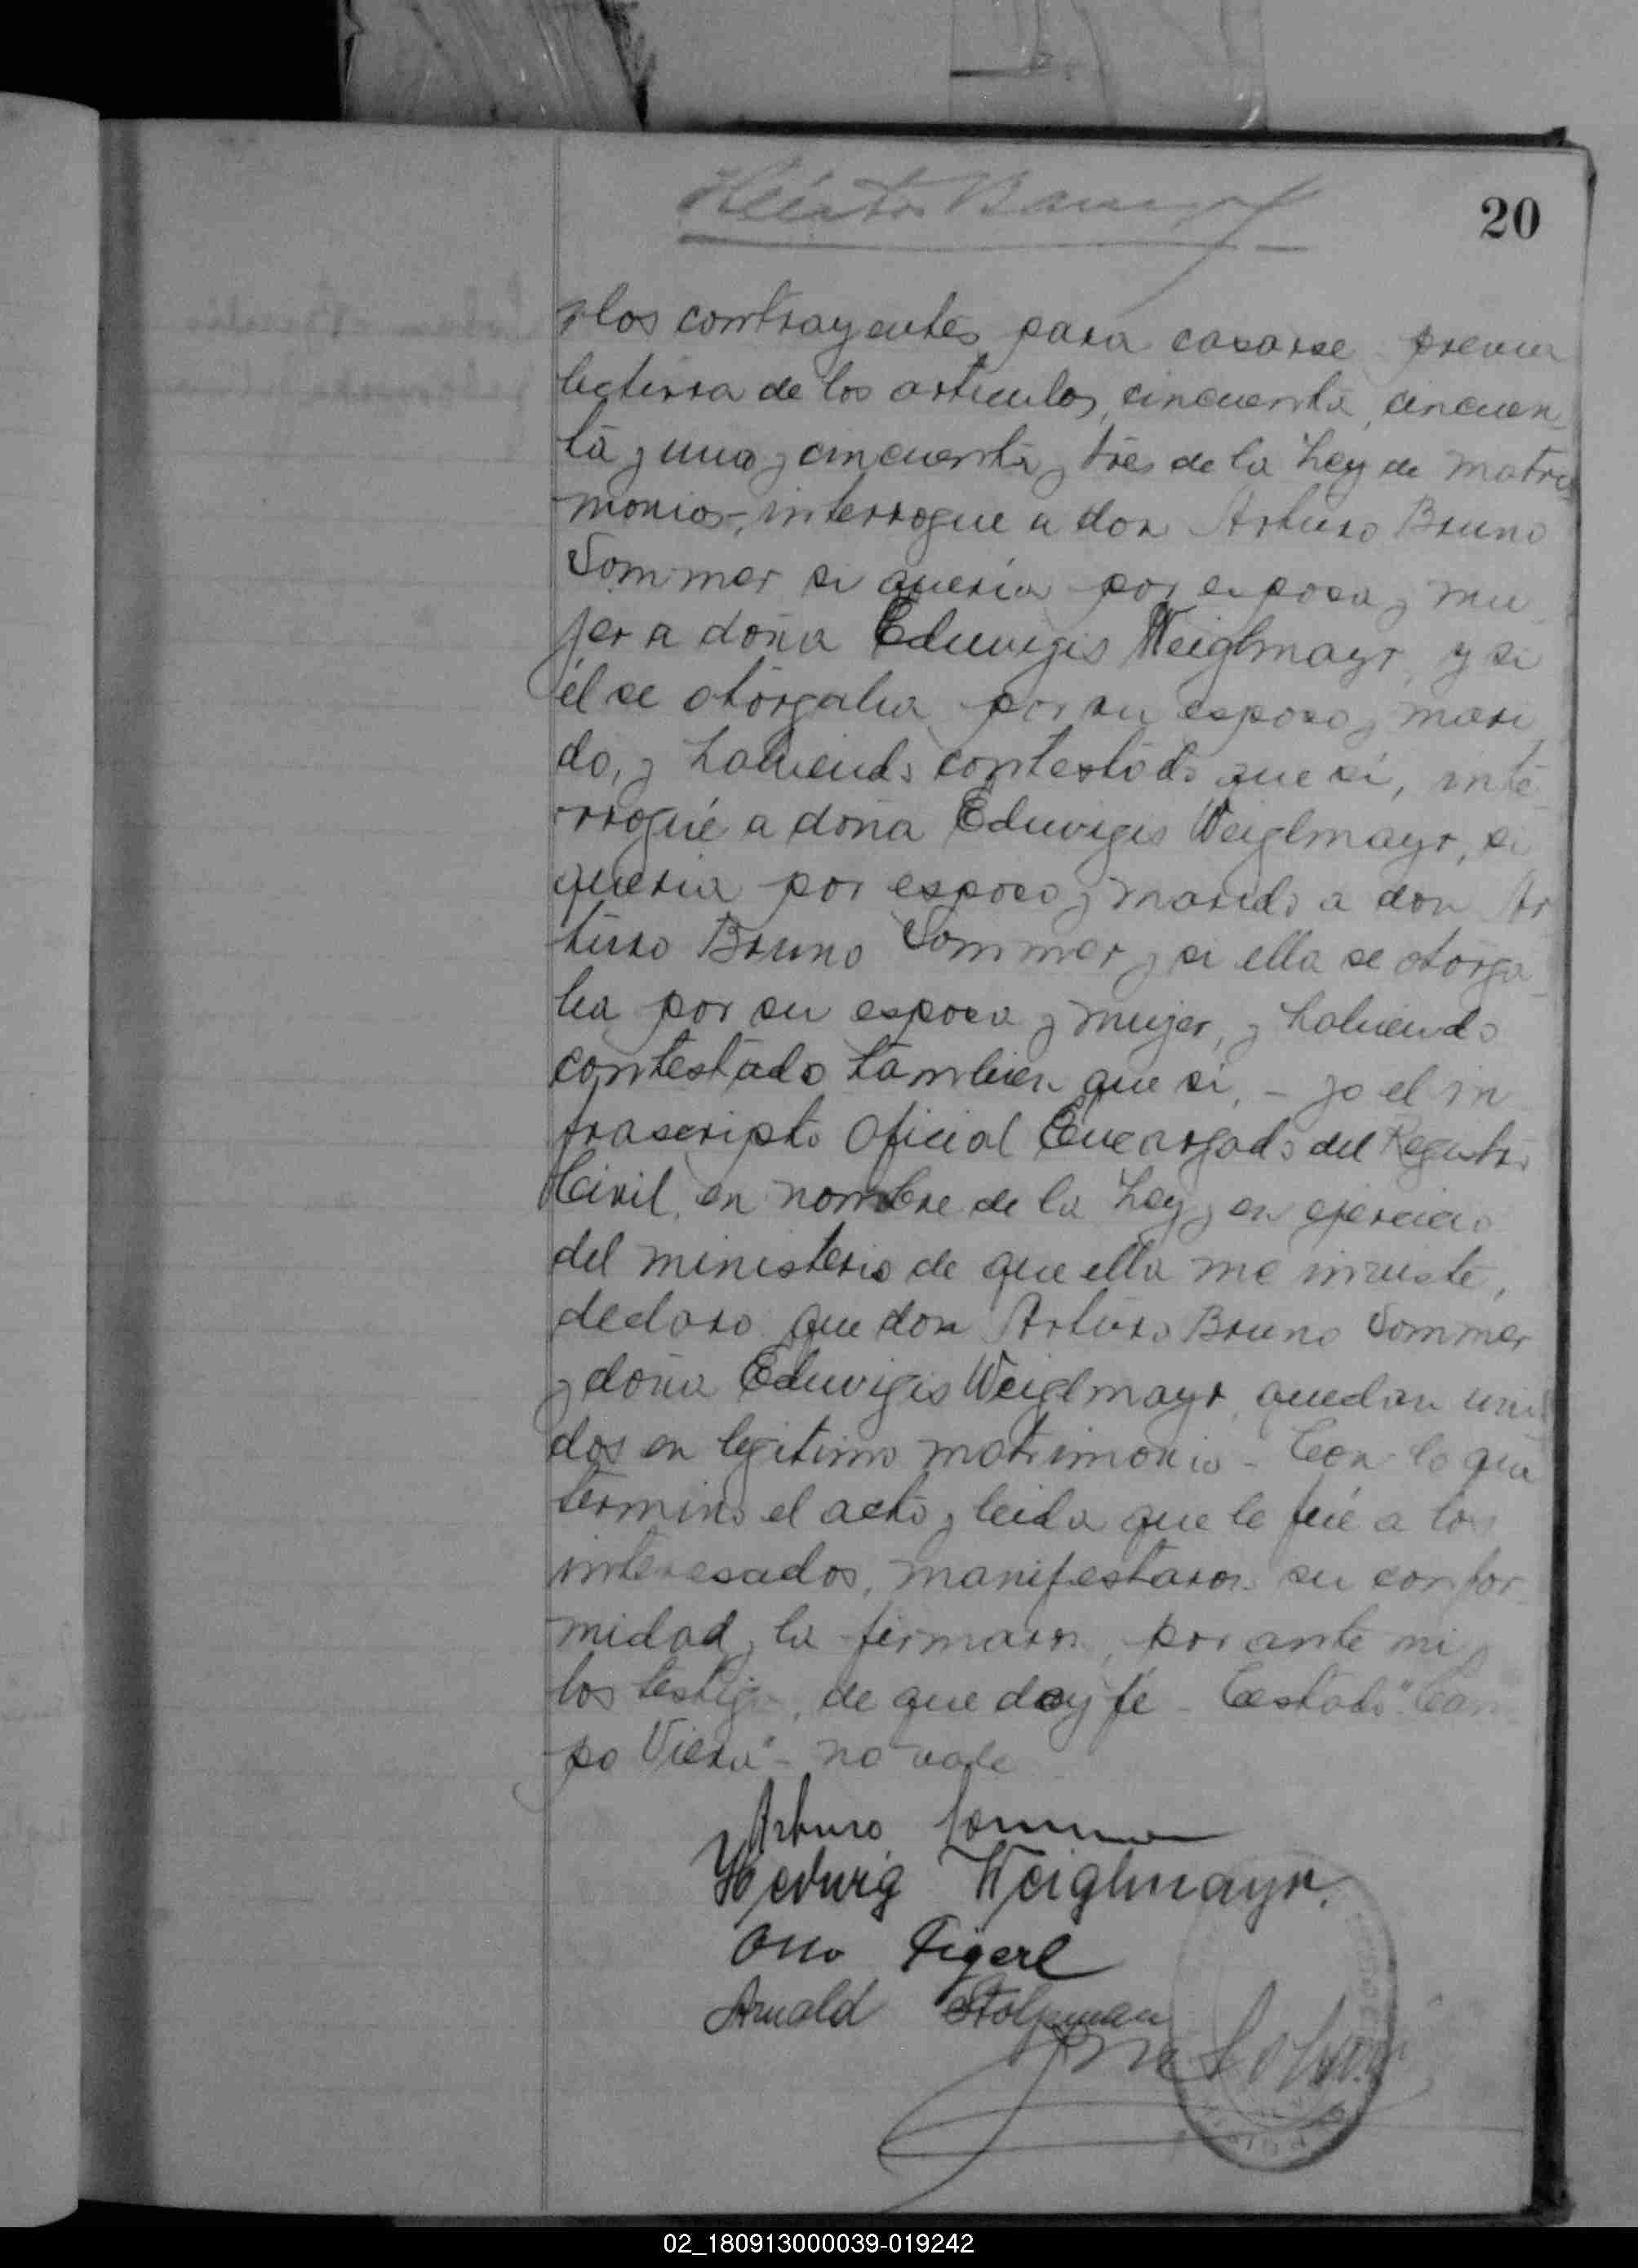 20
los contrayentes para casarse previa
lectura de los articulos, cincuenta, cincuen
ta y uno y cincuenta y tres de la Ley de matri
monios, interrogue a don Arturo Bruno
Sommer si queria por esposa y mu
jer a doña Eduvigis Weiglmayr, y si
él se otorgaba por su esposo y mari
do, y habiendo contestado que si, inte
rrogué a doña Eduvigis Weiglmayr, si
queria por esposo y marido a don Ar
turo Bruno Sommer y si ella se otorga
ba por su esposa y mujer, y habiendo
contestado tambien que si, - yo el in
frascripto Oficial Encargado del Registro
Civil, en nombre de la Ley y en ejercicio
del ministerio de que ella me inviste,
declaro que don Arturo Bruno Sommer
y doña Eduvigis Weiglmayr, quedan uni
dos en legitimo matrimonio - Con lo que
termino el acto y leida que le fué a los
interesados, manifestaron su confor
midad y la firmaron, por ante mi y
los testigos, de que doy fé - Testado "Cam
po Viera" - no vale
Arturo Sommer
Hedwig Weiglmayr.
Otto Figerl
Arnald Stolpman
02_180913000039-019242